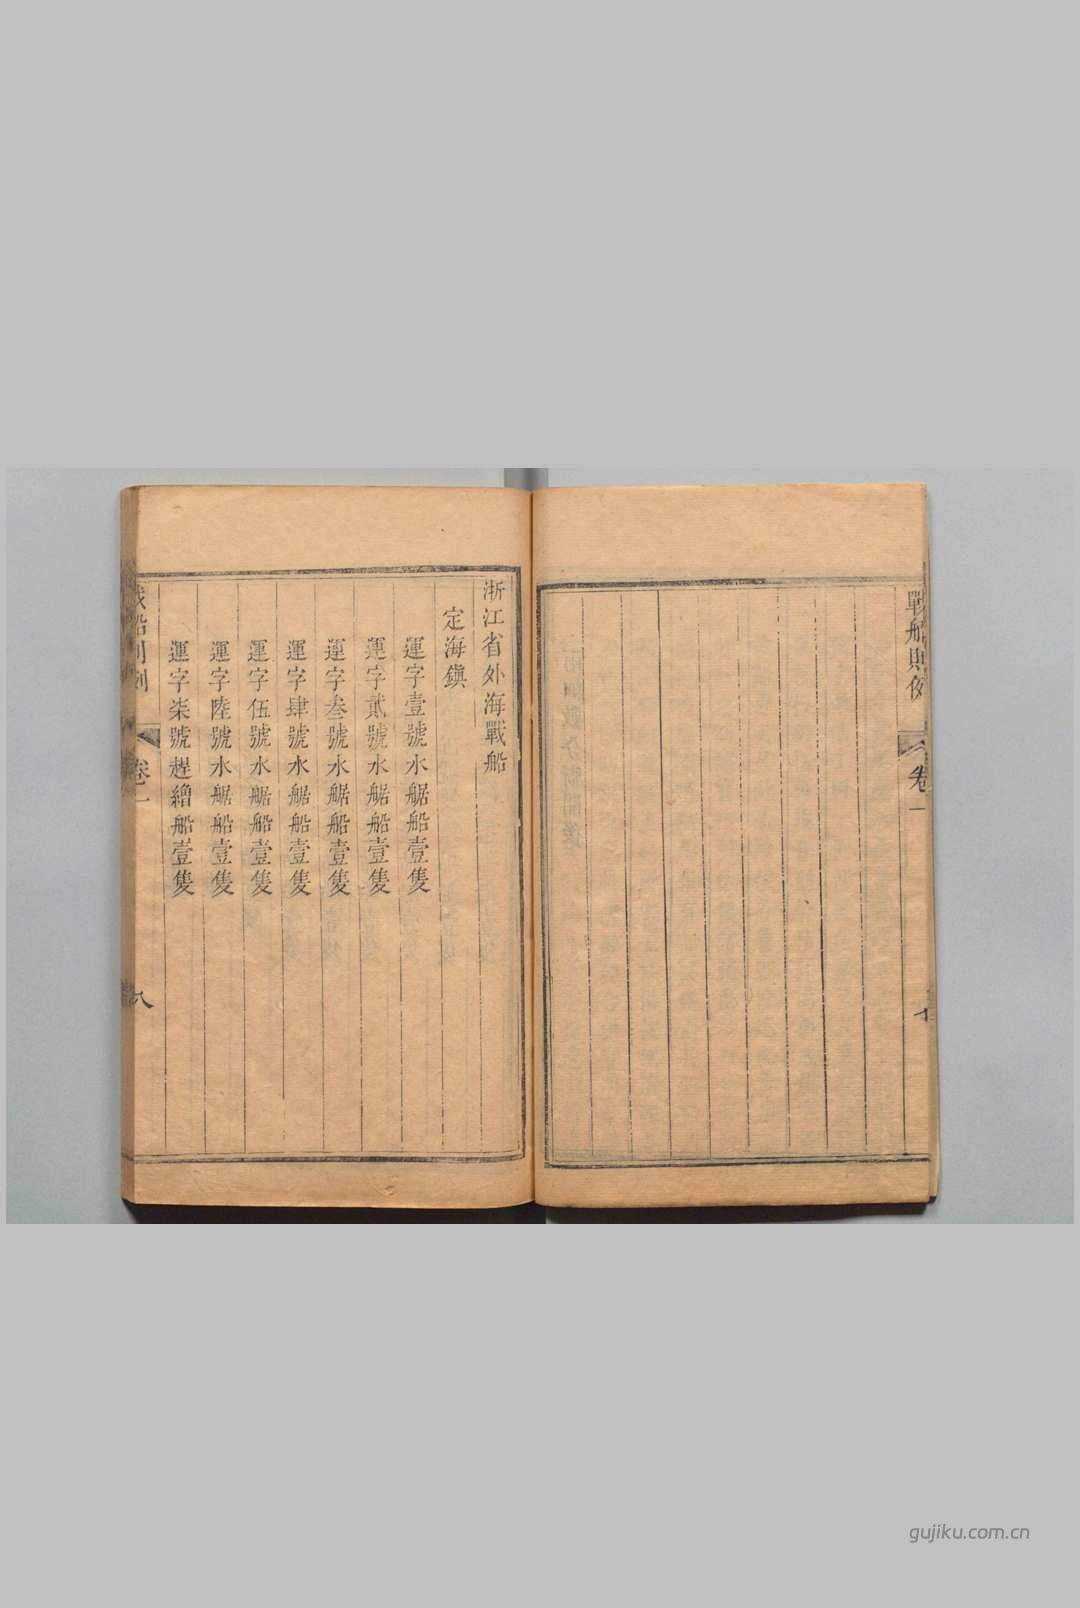 戰船則例
卷一
浙江省外海戰船
定海鎭
運字壹號水艍船壹隻
運字貳號水艍船壹隻
運字叁號水艍船壹隻
運字肆號水艍船壹隻
運字伍號水艍船壹隻
運字陸號水艍船壹隻
運字柒號趕繒船壹隻
戰船則例
卷一
八
gujiku.com.cn